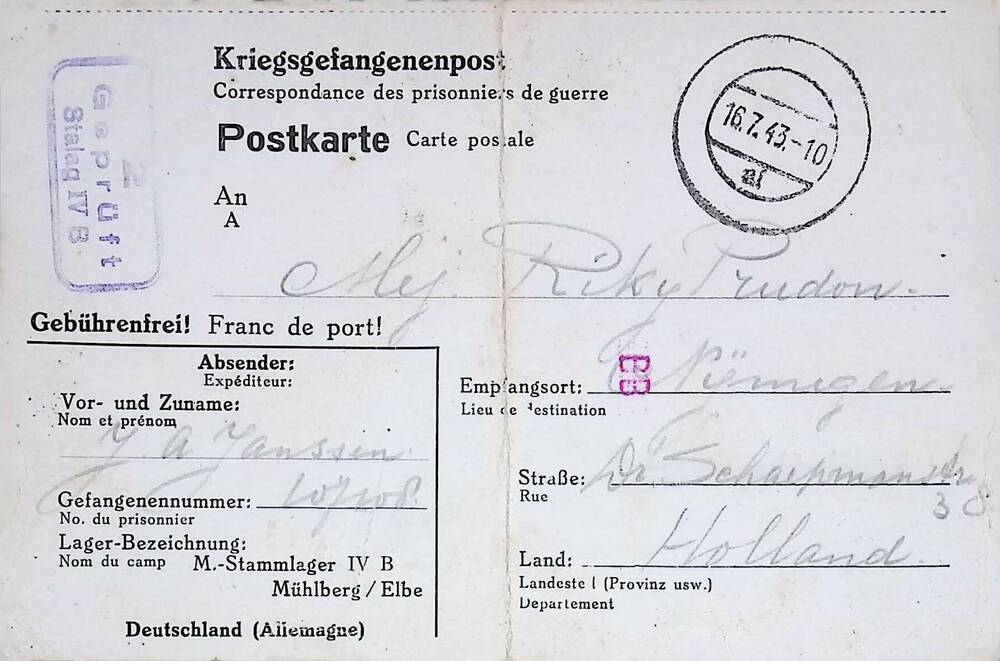 Kriegsgefangenenpost
Correspondance des prisonniers de guerre
Postkarte Carte postale
2
Geprüft
Stalag IV B
16.7.43.-10
An
A
Mej. Riky Prudon.
Gebührenfrei! Franc de port!
Absender:
Expéditeur:
Vor- und Zuname:
Nom et prénom
J. A Janssen.
Gefangenennummer:
No. du prisonnier
Lager-Bezeichnung:
Nom du camp M.-Stammlager IV B
Mühlberg / Elbe
Deutschland (Allemagne)
Empfangsort: Nijmegen.
Lieu de destination
Straße: Dr. Schaepmanstr
Rue
Land: Holland.
Landesteil (Provinz usw.)
Departement